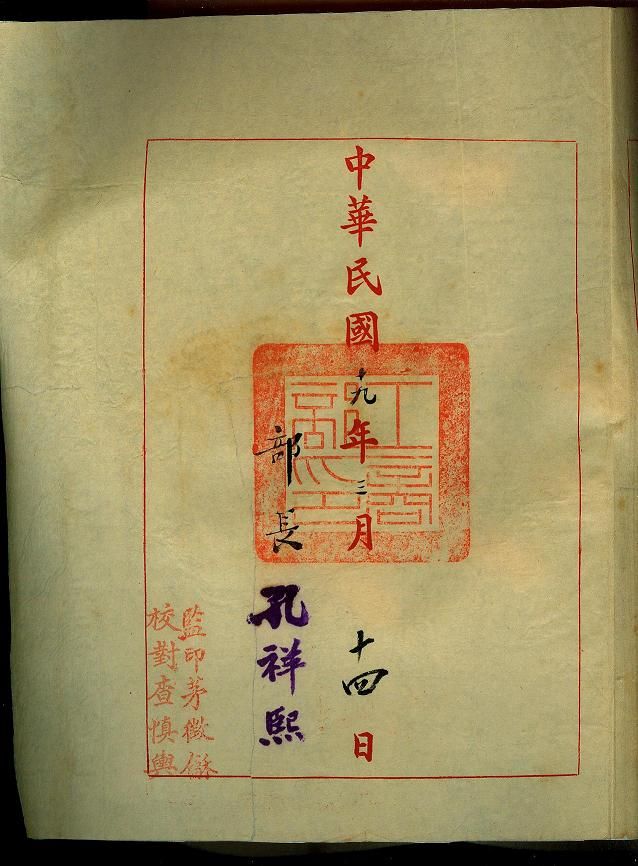 中華民國十九年三月十四日
工商部印
部長 孔祥熙
監印茅徵
校對查慎輿